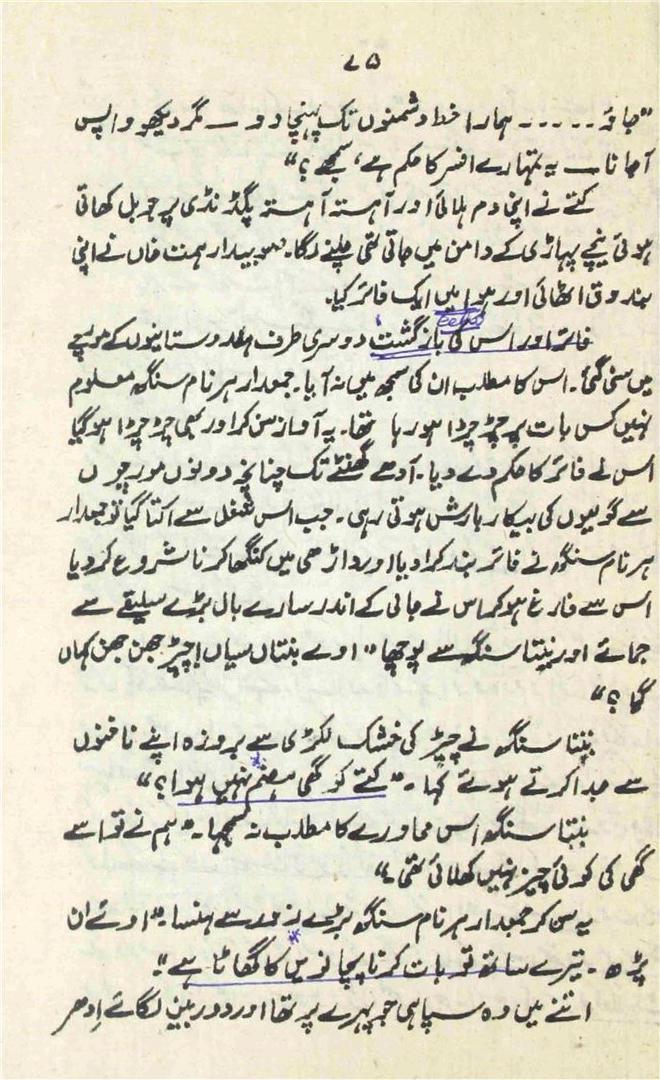 ۷۵
"جاؤ ۔۔۔۔۔ ہمارا خط دشمنوں تک پہنچا دو — مگر دیکھو واپس
آجانا — یہ تمہارے افسر کا حکم ہے، سمجھے؟"
کتے نے اپنی دم ہلائی اور آہستہ آہستہ پگڈنڈی پر جو بل کھاتی
ہوئی نیچے پہاڑی کے دامن میں جاتی تھی چلنے لگا۔ صوبیدار ہمت خاں نے اپنی
بندوق اٹھائی اور ہوا میں ایک فائر کیا۔
فائر اور اس کی بازگشت دوسری طرف ہندوستانیوں کے مورچے
میں سنی گئی۔ اس کا مطلب ان کی سمجھ میں نہ آیا۔ جمعدار ہرنام سنگھ معلوم
نہیں کس بات پر چڑچڑا ہو رہا تھا۔ یہ آواز سن کر اور بھی چڑچڑا ہو گیا
اس نے فائر کا حکم دے دیا۔ آدھے گھنٹے تک چنانچہ دونوں مورچوں
سے گولیوں کی بیکار بارش ہوتی رہی۔ جب اس شغل سے اکتا گیا تو جمعدار
ہرنام سنگھ نے فائر بند کرا دیا اور داڑھی میں کنگھا کرنا شروع کر دیا
اس سے فارغ ہو کر اس نے جالی کے اندر سارے بال بڑے سلیقے سے
جمائے اور بنتا سنگھ سے پوچھا "اوے بنتاں سیاں! چپڑ جھن جھن کہاں
گیا؟"
بنتا سنگھ نے چیڑ کی خشک لکڑی سے بروزہ اپنے ناخنوں
سے جدا کرتے ہوئے کہا۔ "کتے کو گھی ہضم نہیں ہوا؟"
بنتا سنگھ اس محاورے کا مطلب نہ سمجھا۔ "ہم نے تو اسے
گھی کی کوئی چیز نہیں کھلائی تھی۔"
یہ سن کر جمعدار ہرنام سنگھ بڑے زور سے ہنسا۔ "اوئے ان
پڑھ۔ تیرے ساتھ تو بات کرنا پچانویں کا گھاٹا ہے"۔
اتنے میں وہ سپاہی جو پہرے پر تھا اور دوربین لگائے اِدھر